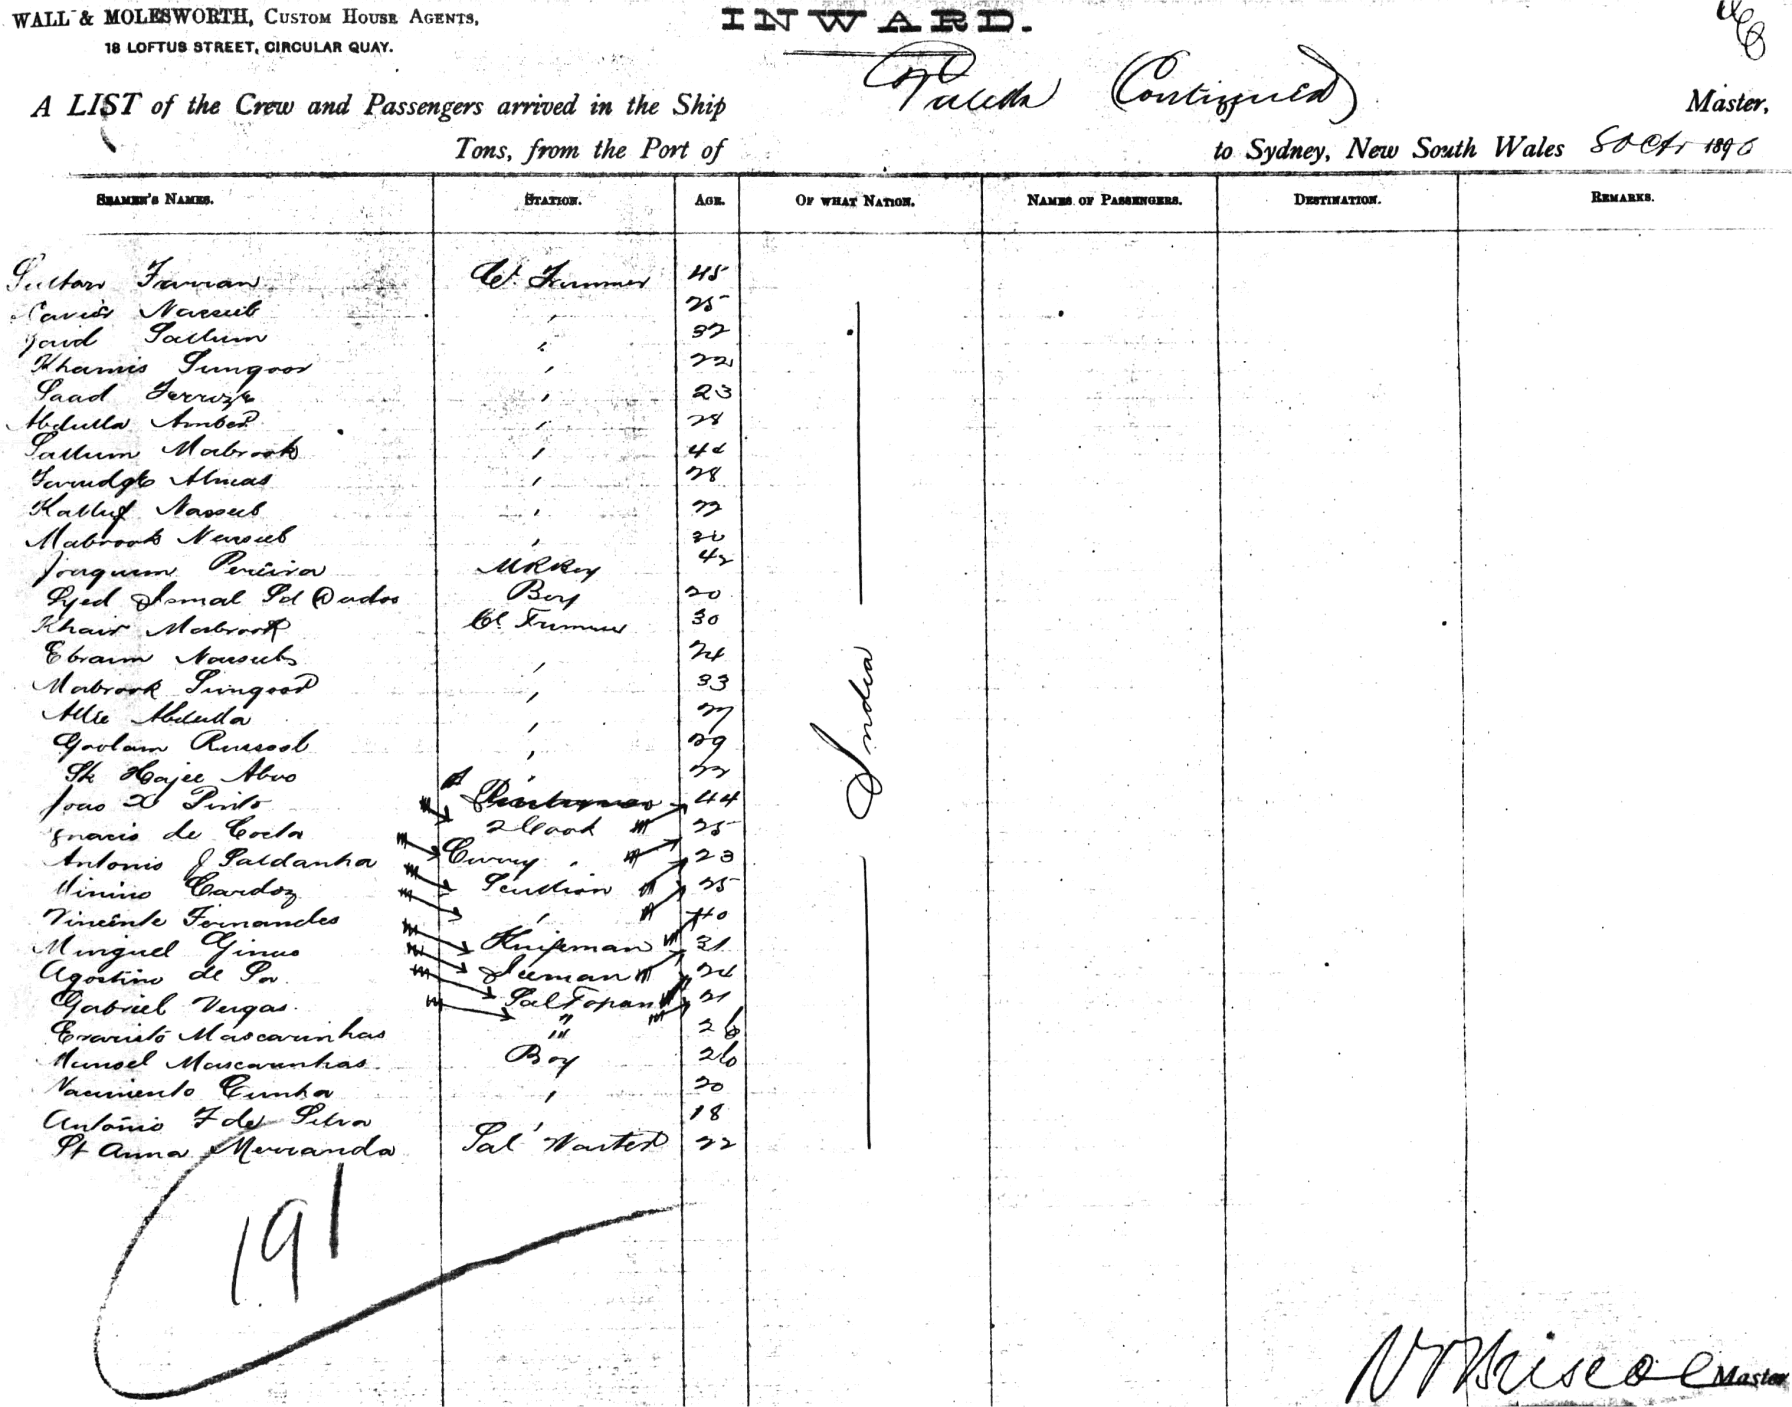 WALL & MOLESWORTH, CUSTOM HOUSE AGENTS,
18 LOFTUS STREET, CIRCULAR QUAY.
INWARD.
A LIST of the Crew and Passengers arrived in the Ship (Continued) Master,
Tons, from the Port of to Sydney, New South Wales 8 Oct 1896
SEAMEN'S NAMES. STATION. AGE. OF WHAT NATION. NAMES OF PASSENGERS. DESTINATION. REMARKS.
Sultan Farran Cl. Trimmer 45
Nasseeb 25
Sallum 32
Khamis Sungoor 22
Saad Ferroze 23
Abdulla Amber 28
Sallum Mabrook 44
Almas 28
Kalluf Nasseeb 22
Mabrook Nasseeb 30
Joaquim Pereira 42
Syed Ismal Sd Boy 20
Khair Mabrook Cl Trimmer 30
Ebraim Nasseeb 24
Mabrook Sungoor 33
Allie Abdulla 27
Goolam Russool 29
Sk Hajee Aboo 22
India
Joao X Pinto 44
Ignacio de Costa 2 Cook 25
Antonio J Saldanha Curry 23
Minino Cardoz Scullion 25
Vincente Fernandes 40
Minguel 31
Agostino de Sa 24
Gabriel Vergas Sal Topan 21
Evaristo Mascarinhas " 26
Manoel Mascarinhas Boy 26
Nacimento Cunha 20
Antonio F de Silva 18
St Anna Merranda Sal Waiter 22
191
Briscoe Master